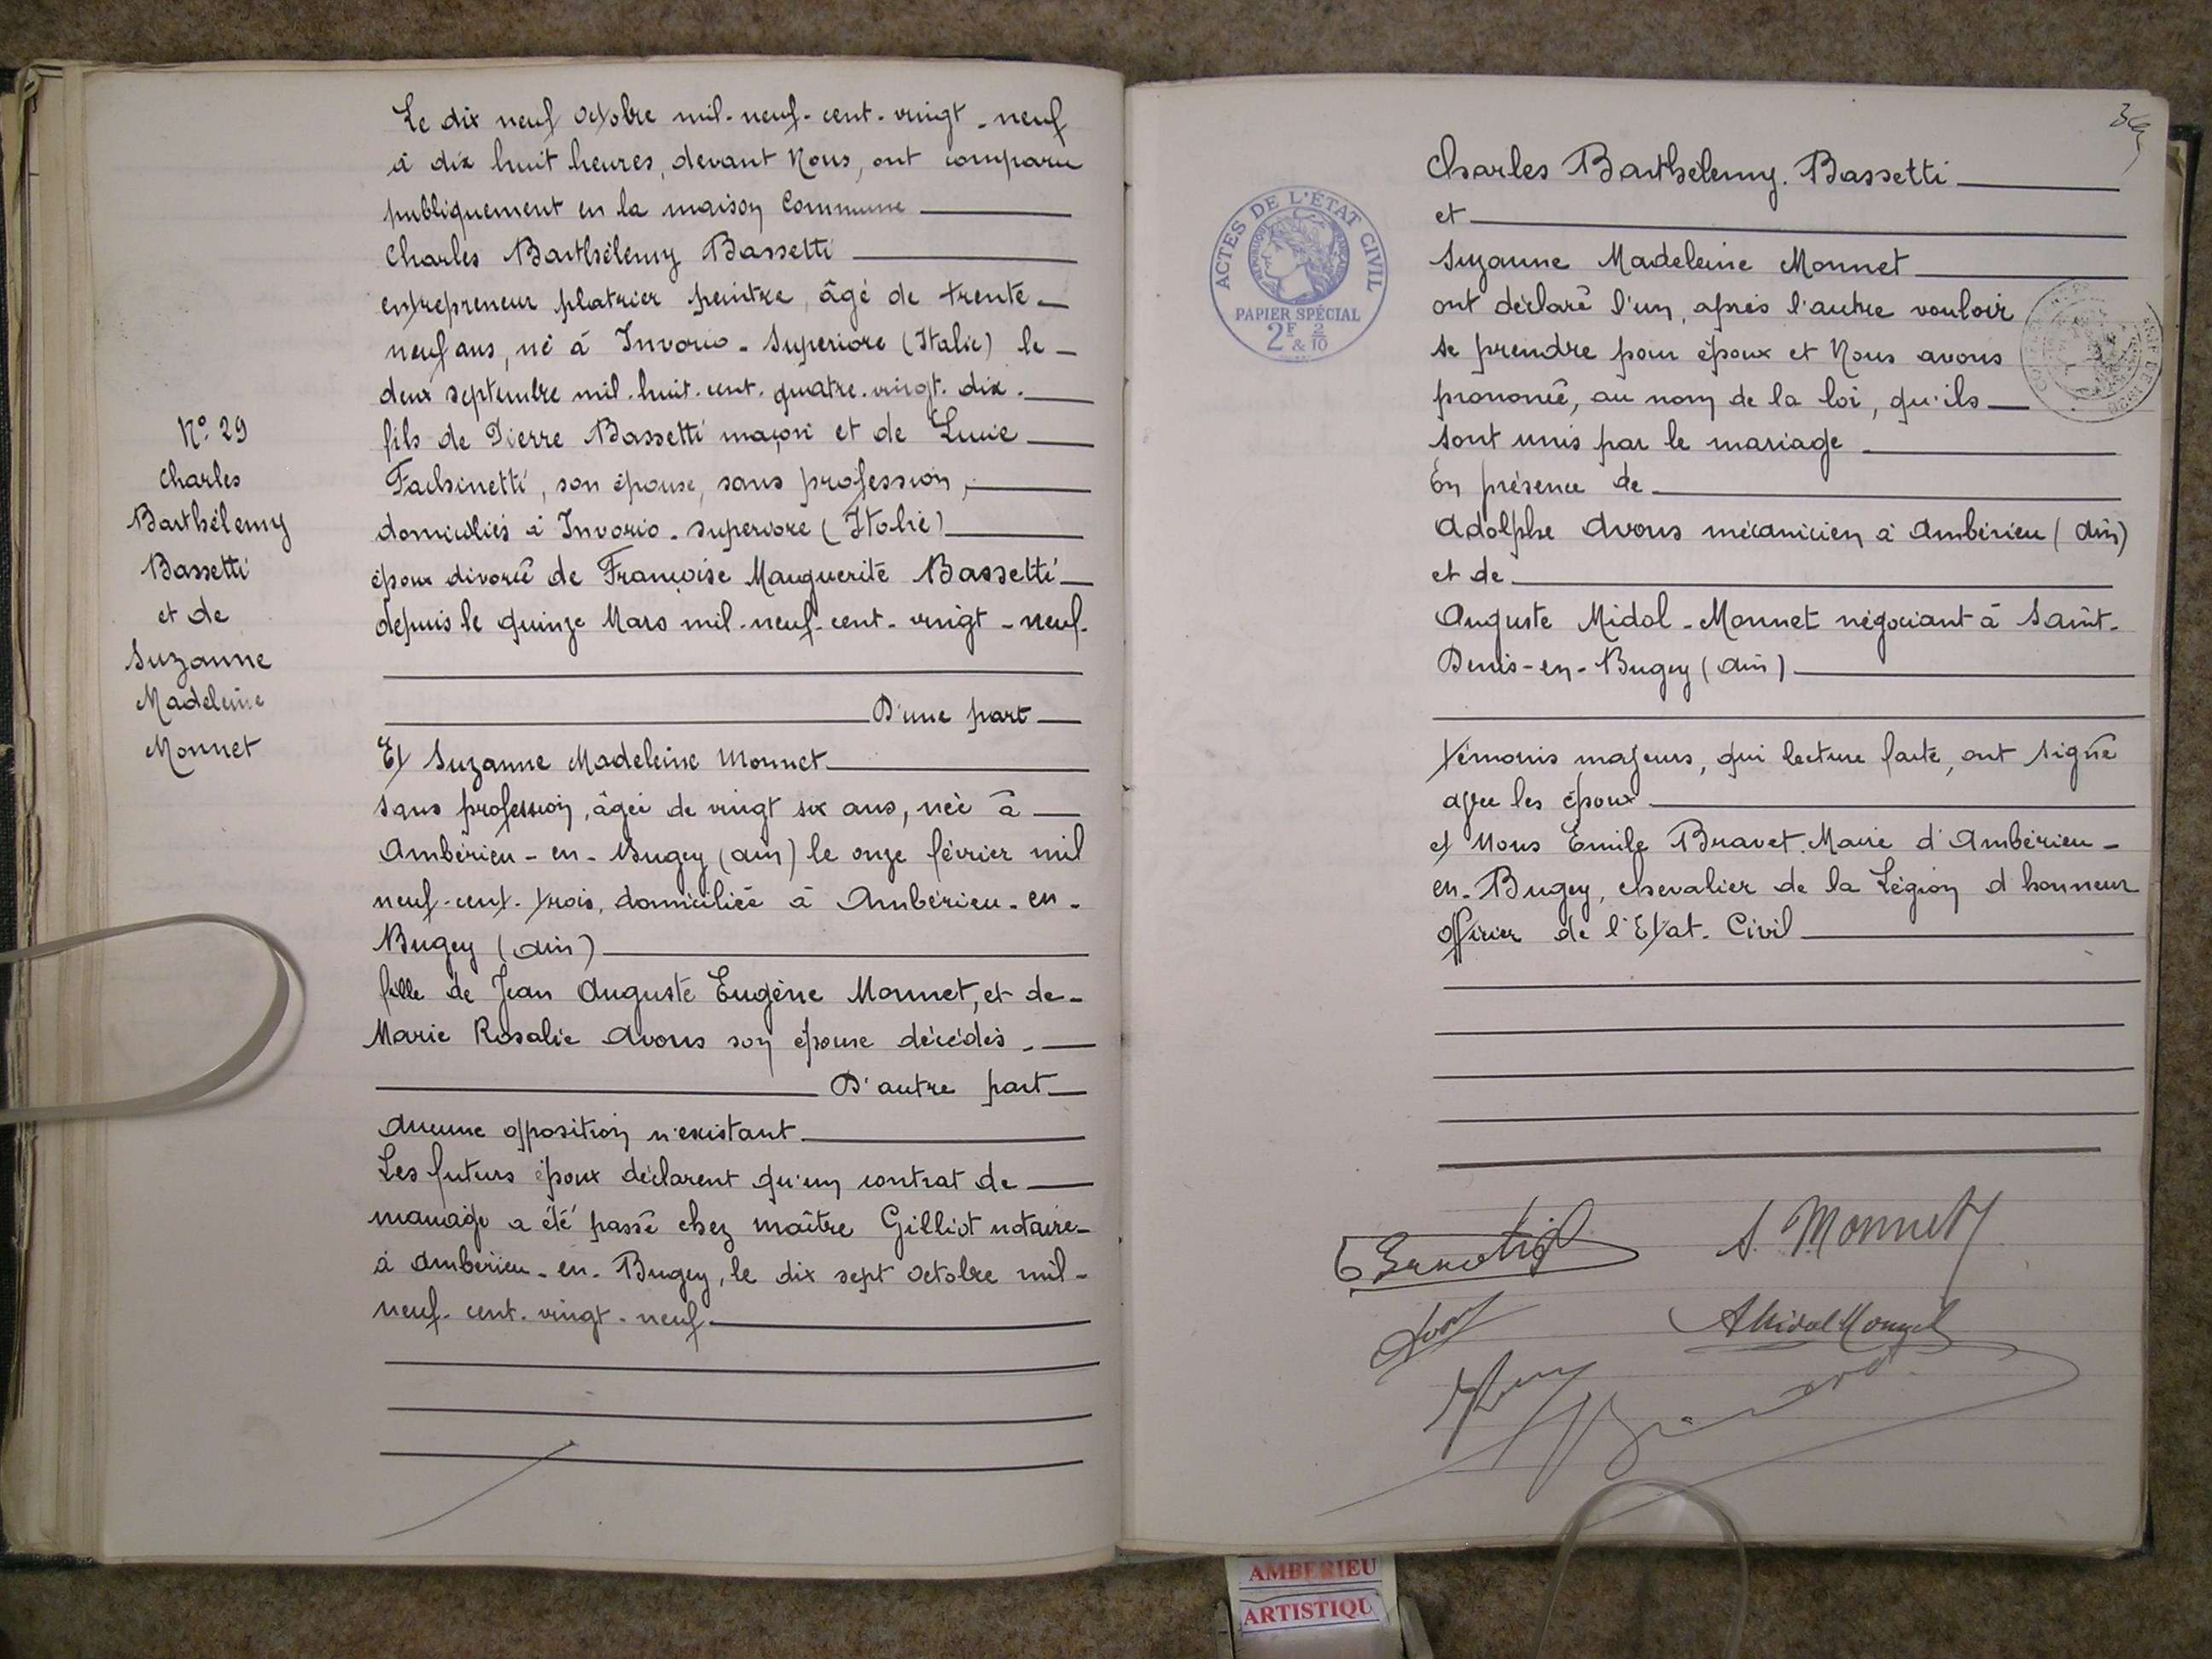 Le dix neuf octobre mil-neuf-cent-vingt-neuf
à dix huit heures, devant Nous, ont comparu
publiquement en la maison Commune
Charles Barthélemy Bassetti
entrepreneur platrier peintre, âgé de trente-
neuf ans, né à Invorio-Superiore (Italie) le
deux septembre mil-huit-cent-quatre-vingt-dix.
fils de Pierre Bassetti maçon et de Lucie
Fachinetti, son épouse, sans profession,
domiciliés à Invorio-superiore (Italie)
époux divorcé de Françoise Marguerite Bassetti
depuis le quinze Mars mil-neuf-cent-vingt-neuf.
D'une part
Et Suzanne Madeleine Monnet
sans profession, âgée de vingt six ans, née à
Ambérieu-en-Bugey (ain) le onze février mil
neuf-cent-trois, domiciliée à Ambérieu-en-
Bugey (ain)
fille de Jean Auguste Eugène Monnet, et de
Marie Rosalie Avons son épouse décédés.
D'autre part
Aucune opposition n'existant
Les futurs époux déclarent qu'un contrat de
mariage a été passé chez maître Gilliot notaire
à Ambérieu-en-Bugey, le dix sept octobre mil-
neuf-cent-vingt-neuf.
N° 29
Charles
Barthélemy
Bassetti
et de
Suzanne
Madeleine
Monnet
Charles Barthélemy. Bassetti
et
Suzanne Madeleine Monnet
ont déclaré l'un, après l'autre vouloir
se prendre pour époux et Nous avons
prononcé, au nom de la loi, qu'ils
sont unis par le mariage
En présence de
Adolphe Avons mécanicien à Ambérieu (ain)
et de
Auguste Midol-Monnet négociant à Saint-
Denis-en-Bugey (ain)
témoins majeurs, qui lecture faite, ont signé
avec les époux
et Nous Emile Bravet. Maire d'Ambérieu-
en-Bugey, chevalier de la Légion d'honneur
officier de l'Etat-Civil
ACTES DE L'ÉTAT CIVIL
RÉPUBLIQUE FRANÇAISE
PAPIER SPÉCIAL
2F & 2/10
S. Monnet
AMidol Monnet
AMBERIEU
ARTISTIQU